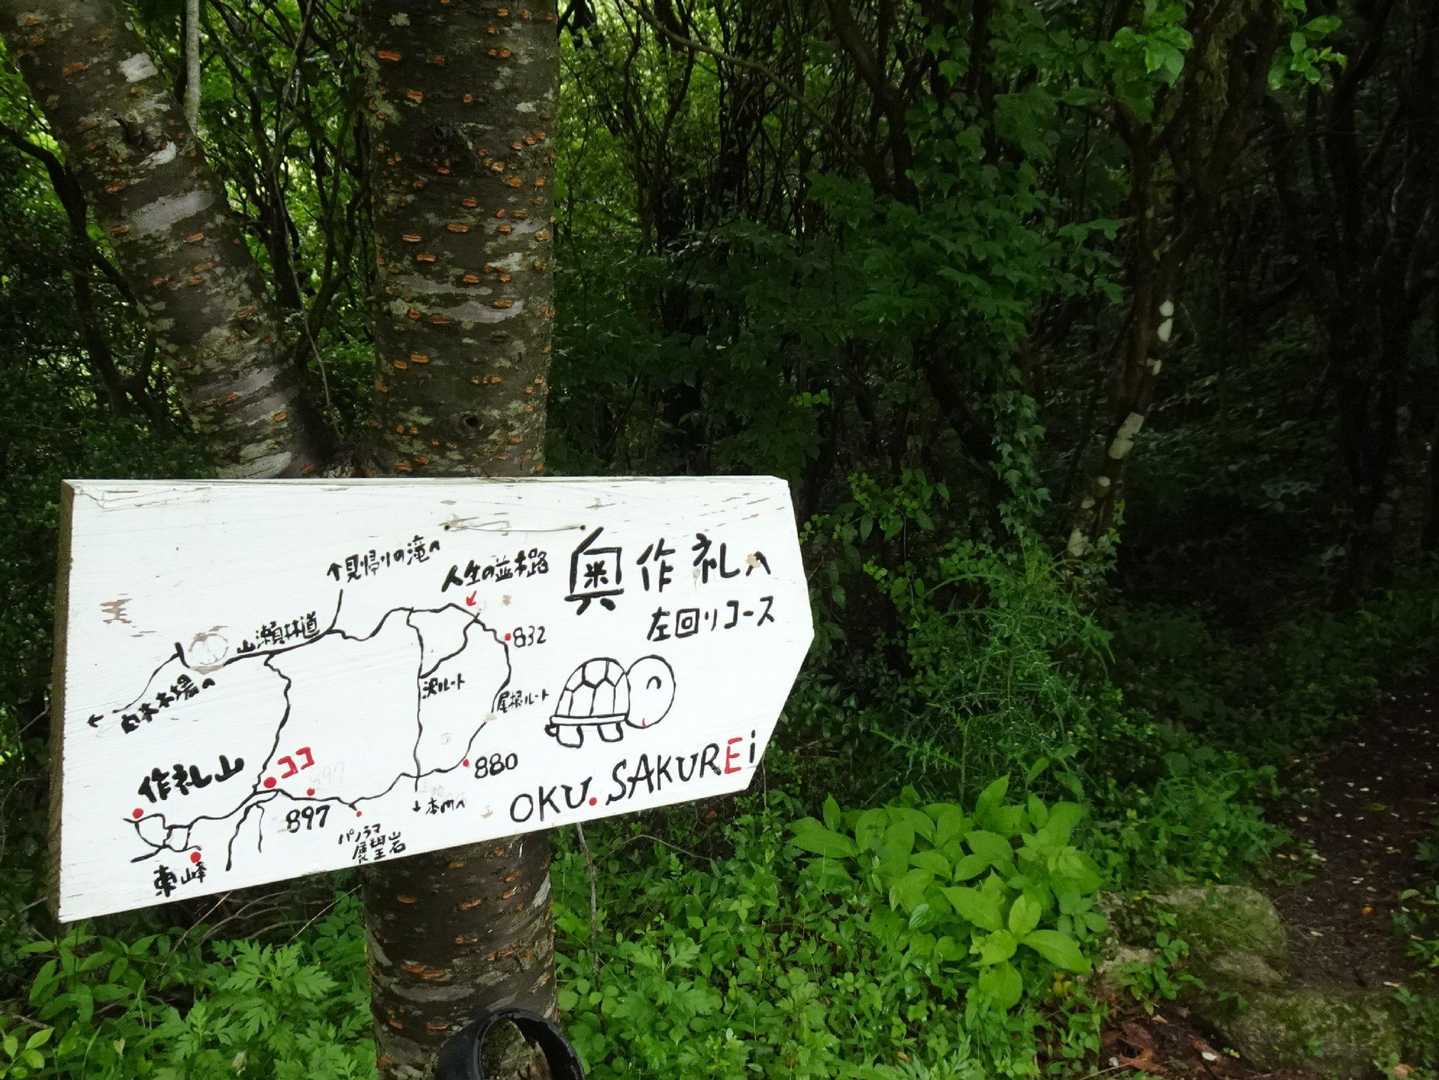 ↑見帰りの滝へ
人生の並木路
奥作礼へ
左回りコース
山瀬林道
832
沢ルート
尾根ルート
作礼山
ココ
897
880
897
↓本門へ
パノラマ
展望岩
東峰
OKU.SAKUREi